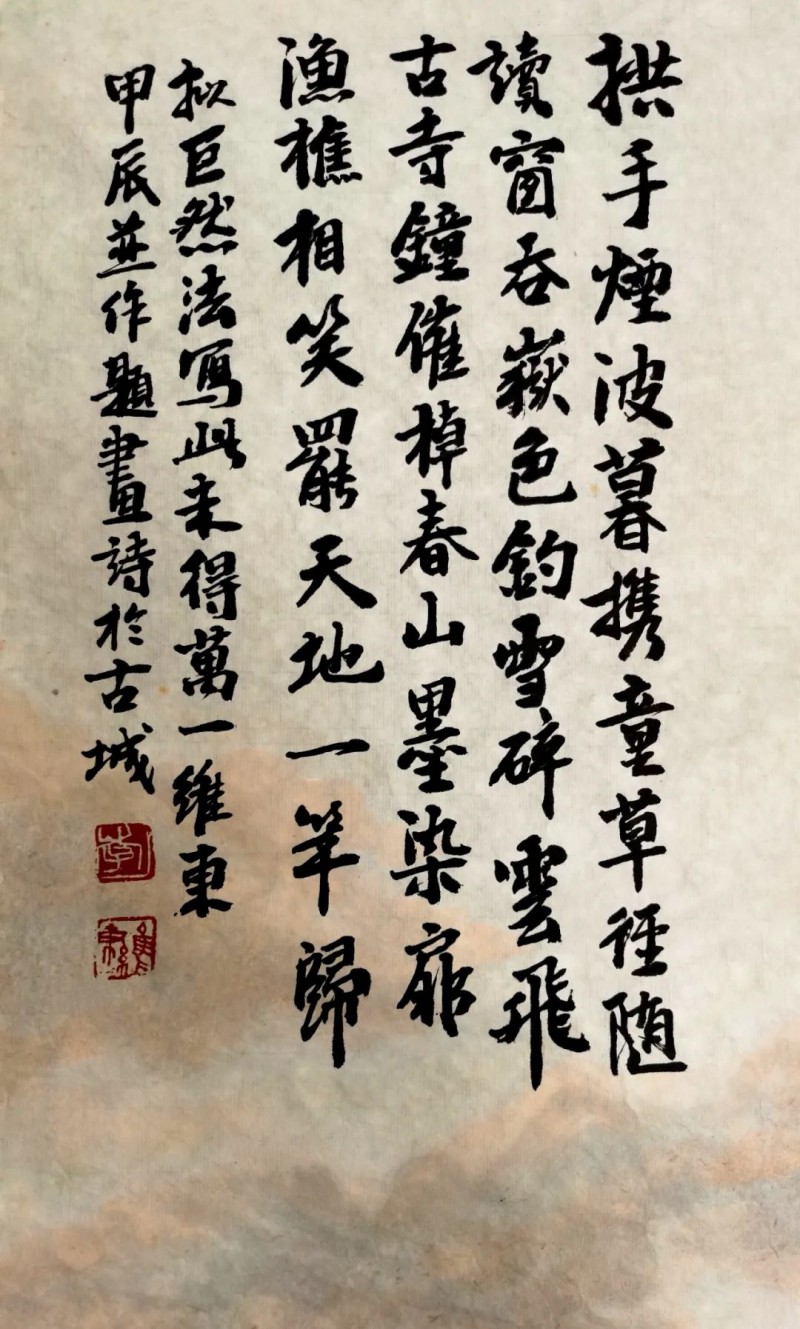 拱手煙波暮携童草徑随
讀窗吞嶽色釣雪碎雲飛
古寺鐘催棹春山墨染扉
漁樵相笑罷天地一竿歸
拟巨然法寫此未得萬一維東
甲辰並作題畫詩於古城
李
維東